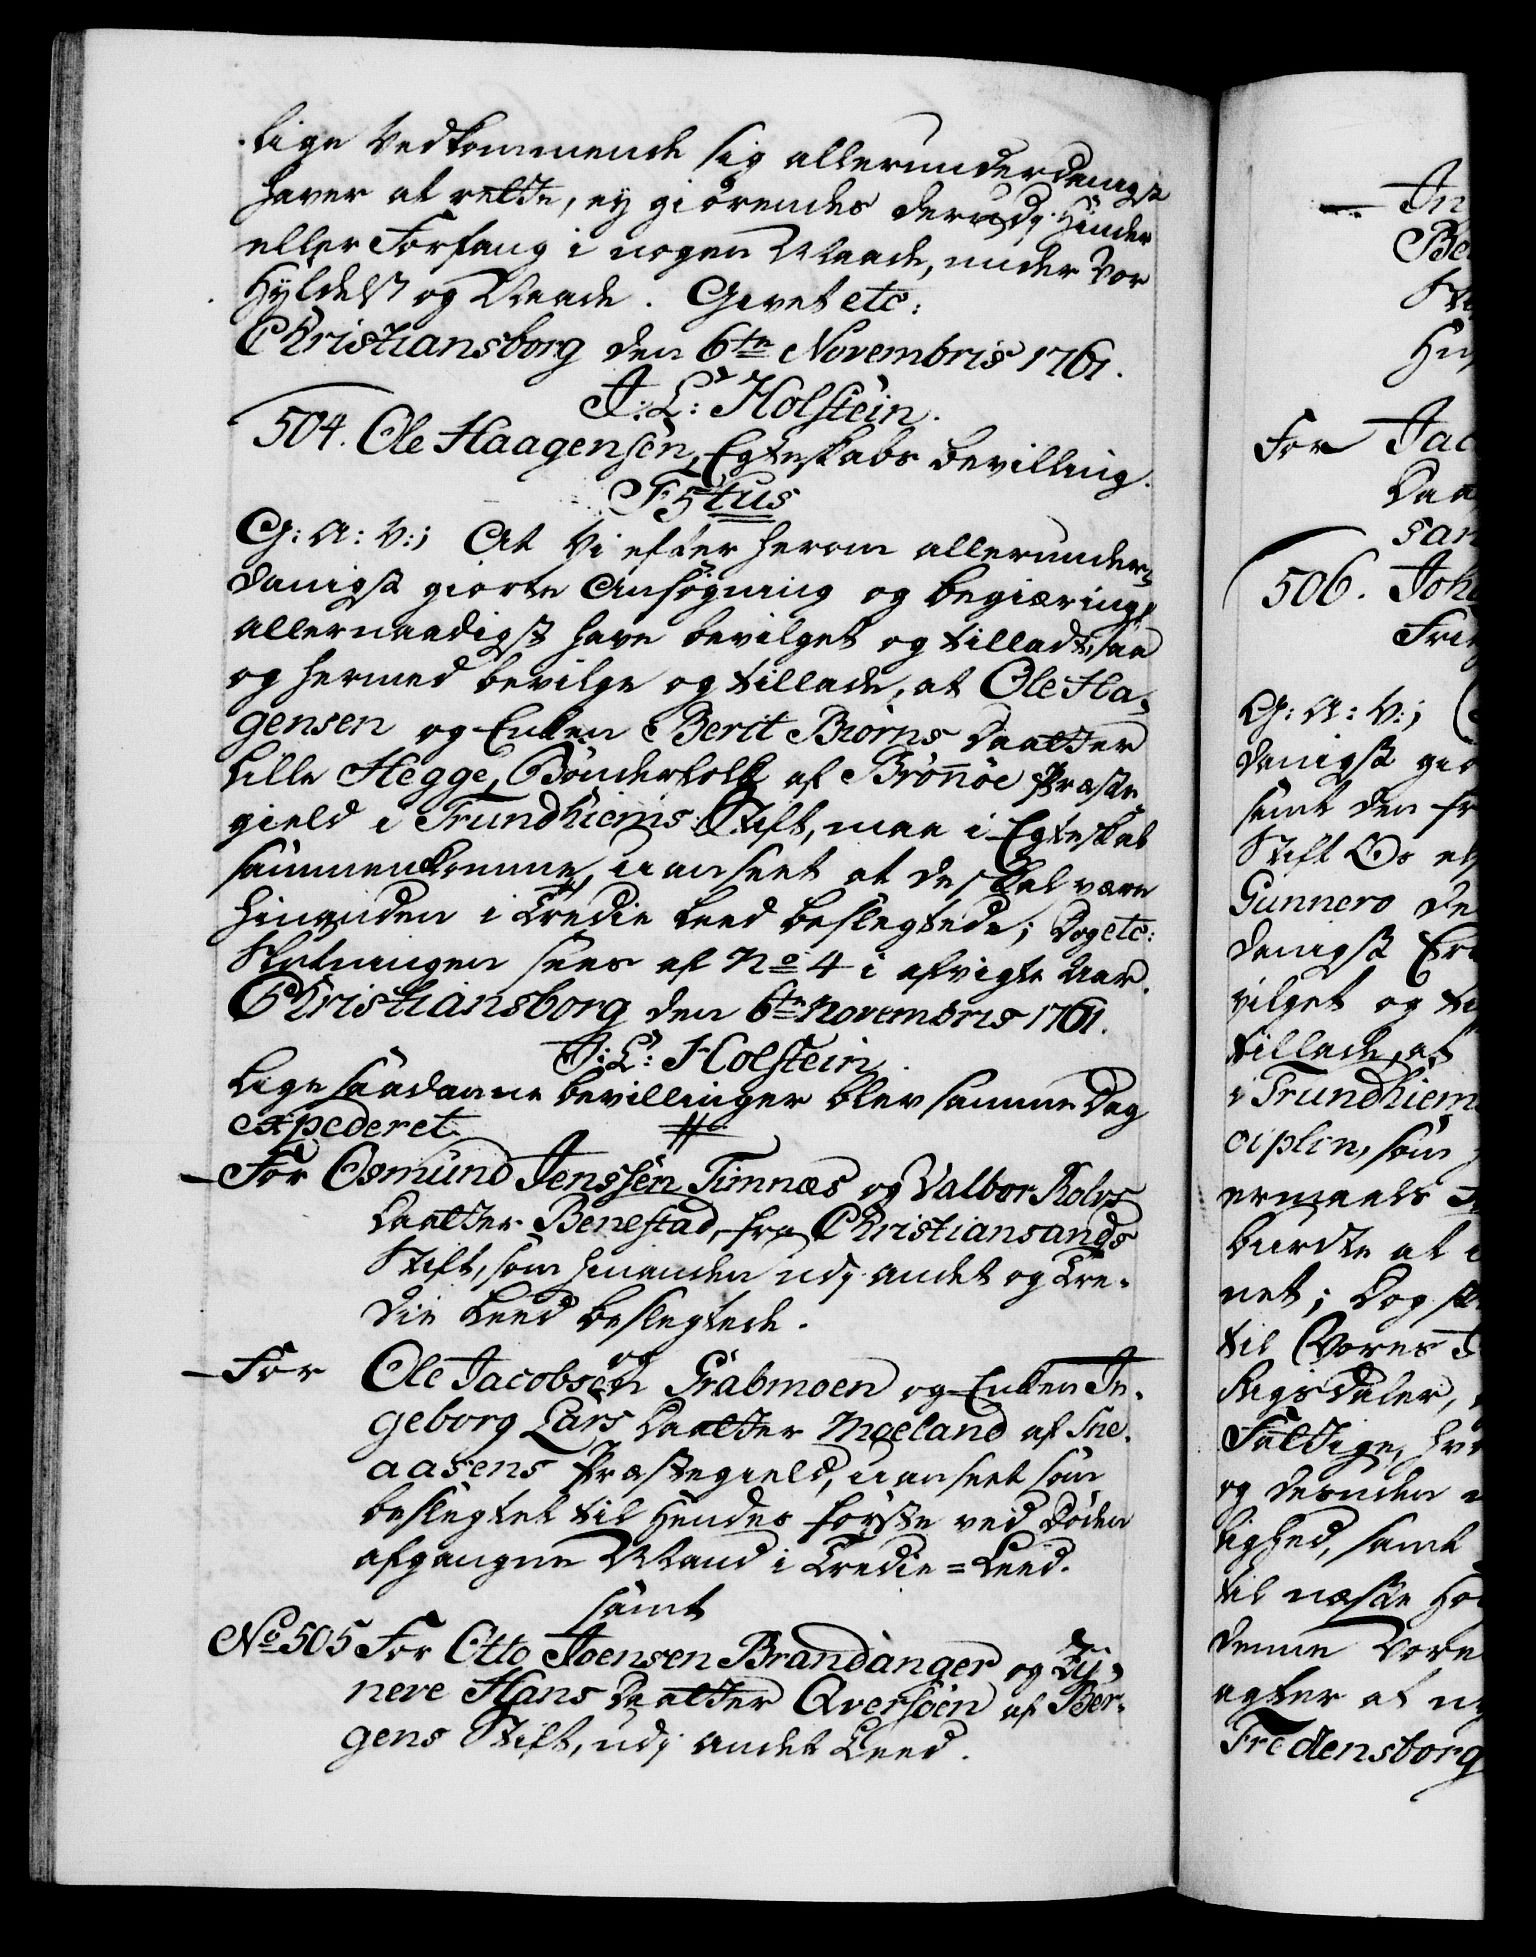 lige Vedkommende sig allerunderdanigst
haver at rette, ey giörendes derudj Hinder
eller Forfang i nogen Maade, under Vor
Hyldest og Naade. Givet etc:
Christiansborg den 6te Novembris 1761.
J: L: Holstein.
504. Ole Haagensen, Egteskabs bevilling.
F 5tus
G: A: V:; At Vi efter herom allerunder-
danigst giorte Ansögning og begiæring,
allernaadigst have bevilget og tilladt, saa
og hermed bevilge og tillade, at Ole Ha-
gensen og Enken Berit Biörns Daatter
Lille Hegge, Bönderfolk af Brönöe Præste-
gield i Trundhiems Stift, maa i Egteskab
sammenkomme, uanseet at de skal være
hinanden i Tredie Leed beslegtede; Dog etc:
Slutningen sees af No 4 i afvigte Aar.
Christiansborg den 6te Novembris 1761.
J: L: Holstein.
Lige saadanne bevillinger blev samme Dag
expederet.
For Osmund Jenssen Timnæs og Valbor Rolvs
Daatter Benestad, fra Christiansands
Stift, som hinanden udj andet og Tre-
die Leed beslegtede.
og
For Ole Jacobsen Grabmoen og Enken In-
geborg Lars Daatter Moeland af Sne-
aasens Præstegield, uanseet som
beslegtet til Hendes förste ved Döden
afgangne Mand i Tredie=Leed.
samt
No 505 For Otto Joensen Brandanger og Sy-
neve Hans Daatter Qversöen af Ber-
gens Stift, udj andet Leed.
In
For Jac
Daa
san
506. Joh
G: A: V:;
danigst gio
samt den fr
Gunnero
danigst Er
vilget og ti
tillade, at
i Trundhiem
ciplin, som
burdte at
net; Dog
til Vores
Rigsdaler,
og desuden
lighed, samt
til næste
denne Vore
agter at
Fredensborg